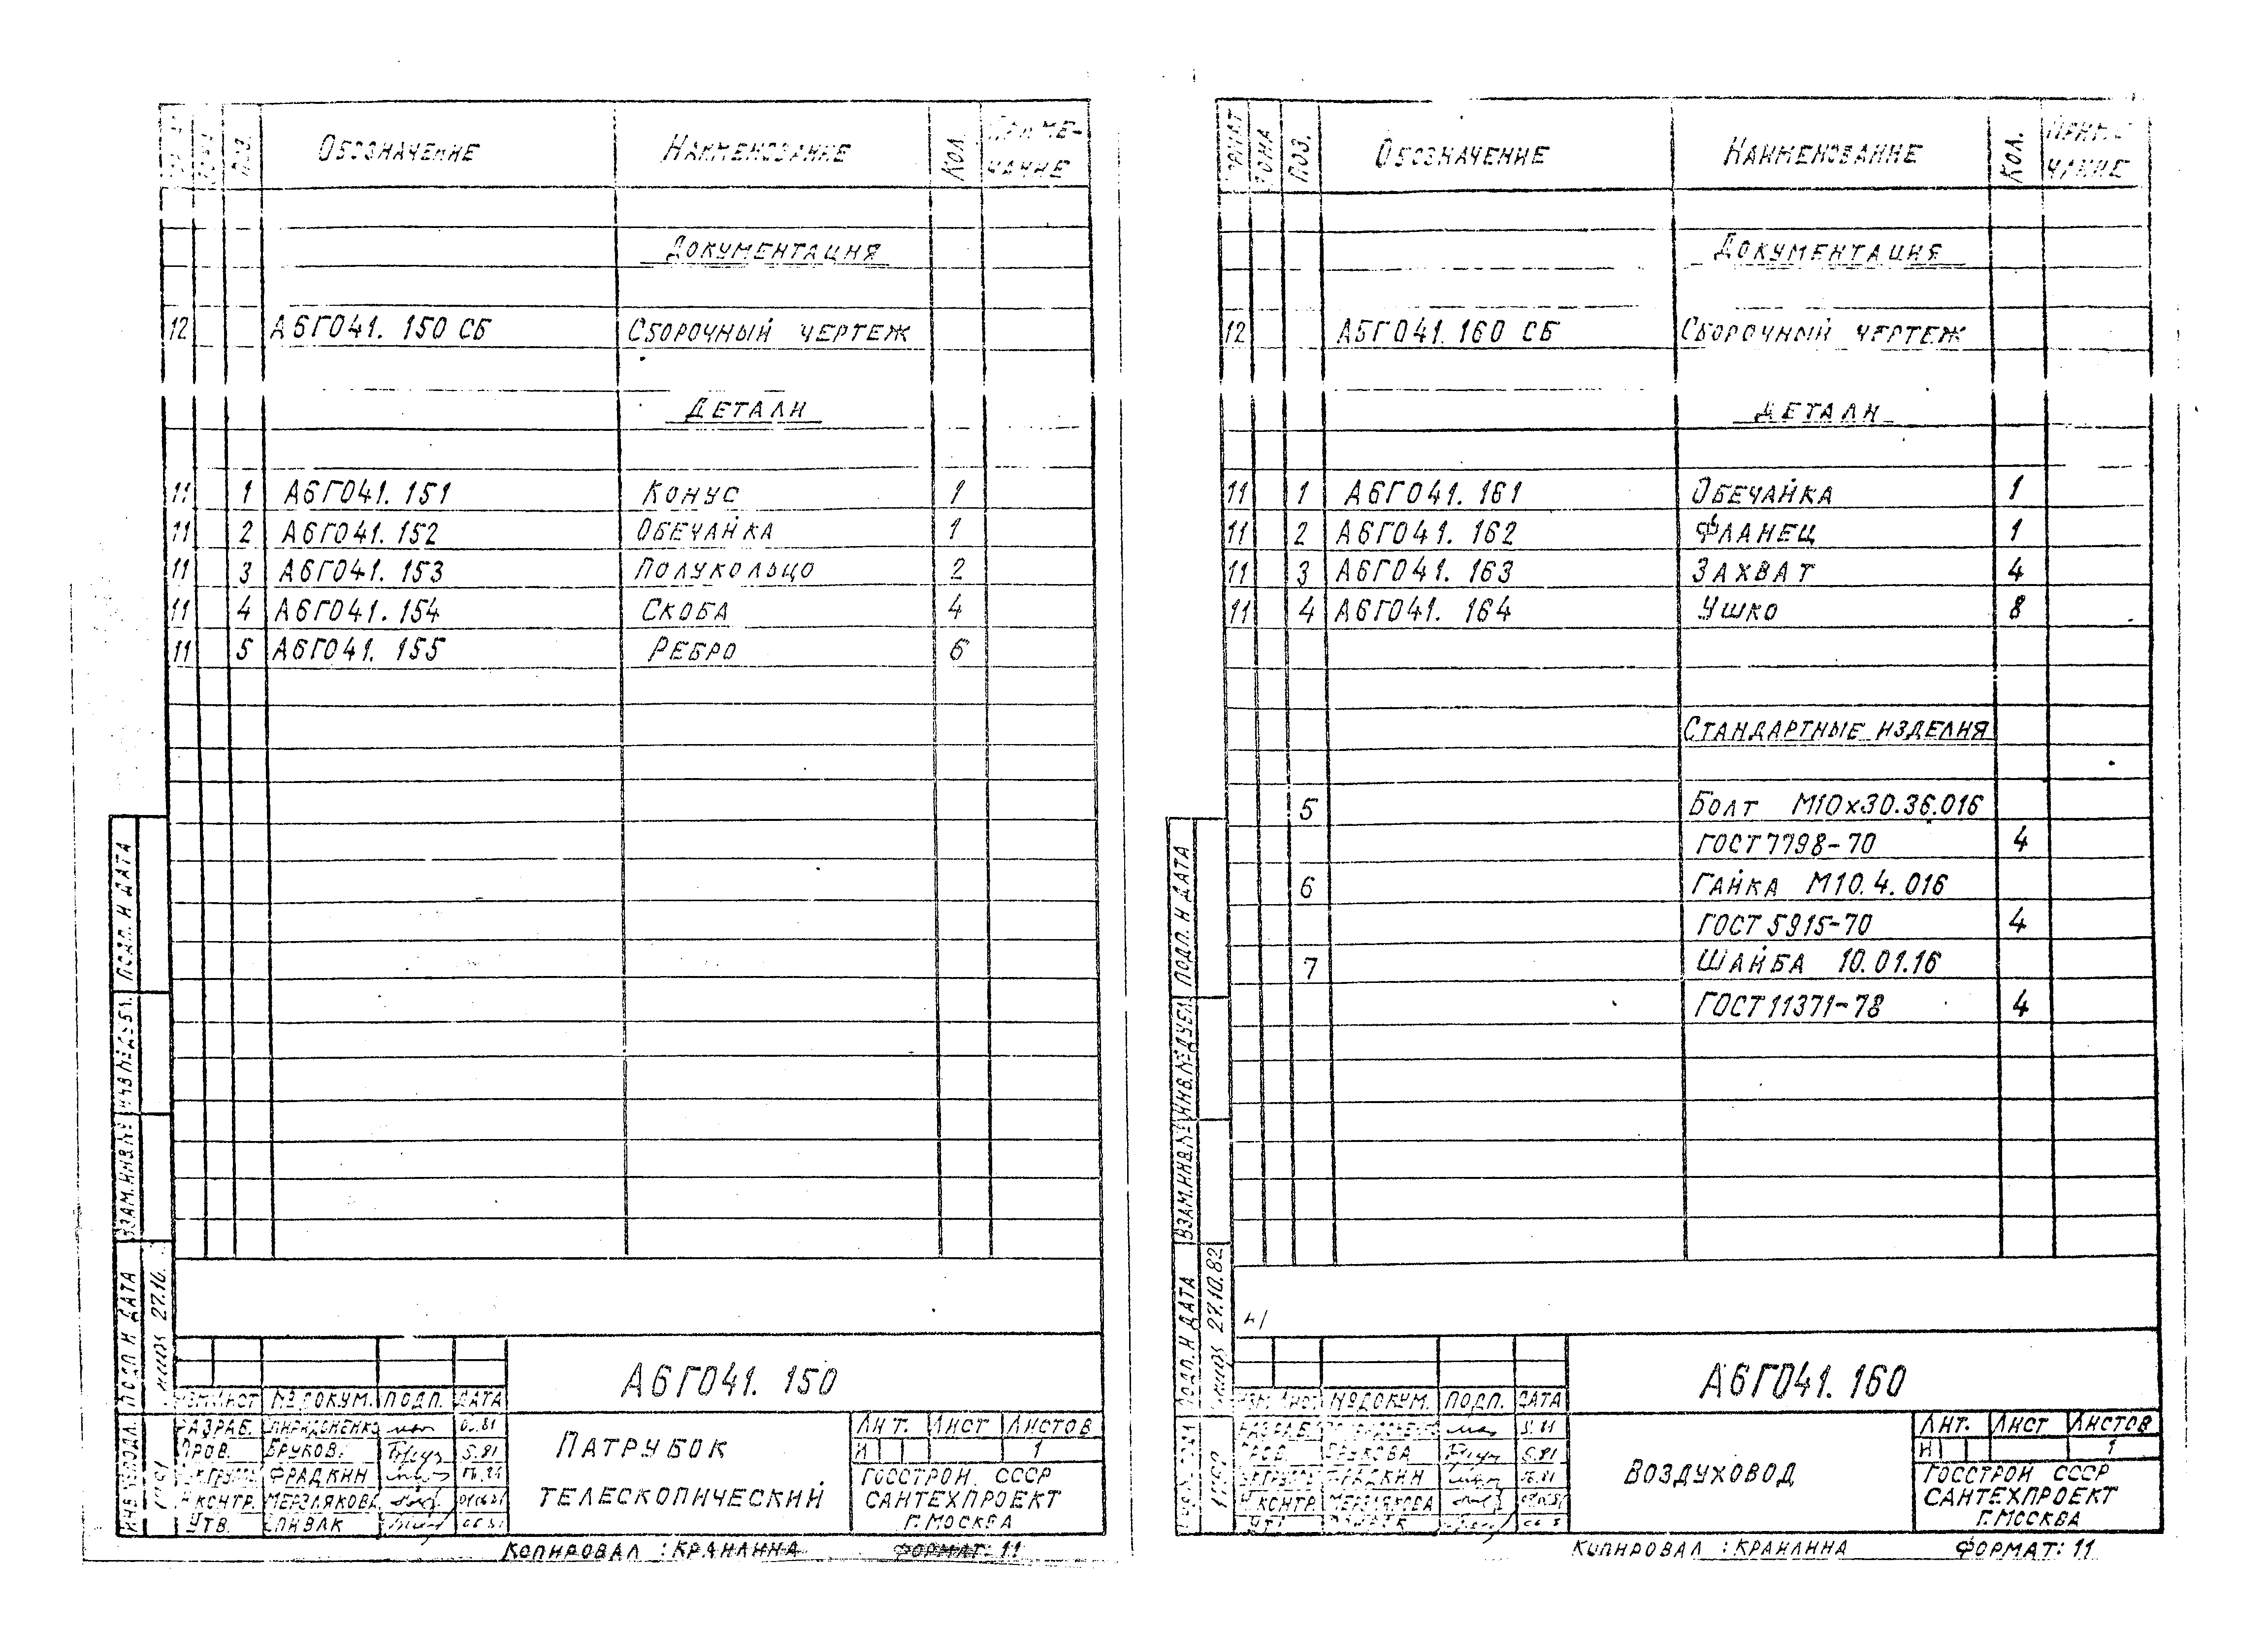 ПОЗ. ОБОЗНАЧЕНИЕ НАИМЕНОВАНИЕ КОЛ. ПРИМЕ-
ЧАНИЕ
ДОКУМЕНТАЦИЯ
12 А6Г041. 150 СБ СБОРОЧНЫЙ ЧЕРТЕЖ
ДЕТАЛИ
11 1 А6Г041. 151 КОНУС 1
11 2 А6Г041. 152 ОБЕЧАЙКА 1
11 3 А6Г041. 153 ПОЛУКОЛЬЦО 2
11 4 А6Г041. 154 СКОБА 4
11 5 А6Г041. 155 РЕБРО 6
ПОДП. И ДАТА
ВЗАМ.ИНВ.№
ПОДП. И ДАТА
27.10.
А6Г041. 150
ЛИСТ №ДОКУМ. ПОДП. ДАТА
РАЗРАБ. СПИРИДОНЕНКО
ПРОВ. БРУКОВ. 5.81
ФРАДКИН
Н.КОНТР. МЕРЗЛЯКОВА
УТВ. СПИВАК
ПАТРУБОК
ТЕЛЕСКОПИЧЕСКИЙ
ЛИТ. ЛИСТ ЛИСТОВ
И 1
ГОССТРОЙ СССР
САНТЕХПРОЕКТ
Г.МОСКВА
КОПИРОВАЛ : КРАНЛИНА ФОРМАТ: 11
ФОРМАТ ЗОНА ПОЗ. ОБОЗНАЧЕНИЕ НАИМЕНОВАНИЕ КОЛ. ПРИМЕ-
ЧАНИЕ
ДОКУМЕНТАЦИЯ
12 А6Г041. 160 СБ СБОРОЧНЫЙ ЧЕРТЕЖ
ДЕТАЛИ
11 1 А6Г041. 161 ОБЕЧАЙКА 1
11 2 А6Г041. 162 ФЛАНЕЦ 1
11 3 А6Г041. 163 ЗАХВАТ 4
11 4 А6Г041. 164 УШКО 8
СТАНДАРТНЫЕ ИЗДЕЛИЯ
5 БОЛТ М10х30.36.016
ГОСТ 7798-70 4
6 ГАЙКА М10.4.016
ГОСТ 5915-70 4
7 ШАЙБА 10.01.16
ГОСТ 11371-78 4
ПОДП. И ДАТА
ИНВ.№ДУБЛ.
ВЗАМ.ИНВ.№
ПОДП. И ДАТА
27.10.82
А6Г041. 160
№ДОКУМ. ПОДП. ДАТА
РАЗРАБ.
ПРОВ. БРУКОВА 5.81
ФРАДКИН
Н.КОНТР. МЕРЗЛЯКОВА
ВОЗДУХОВОД
ЛИТ. ЛИСТ ЛИСТОВ
И 1
ГОССТРОЙ СССР
САНТЕХПРОЕКТ
Г.МОСКВА
КОПИРОВАЛ : КРАНЛИНА ФОРМАТ: 11